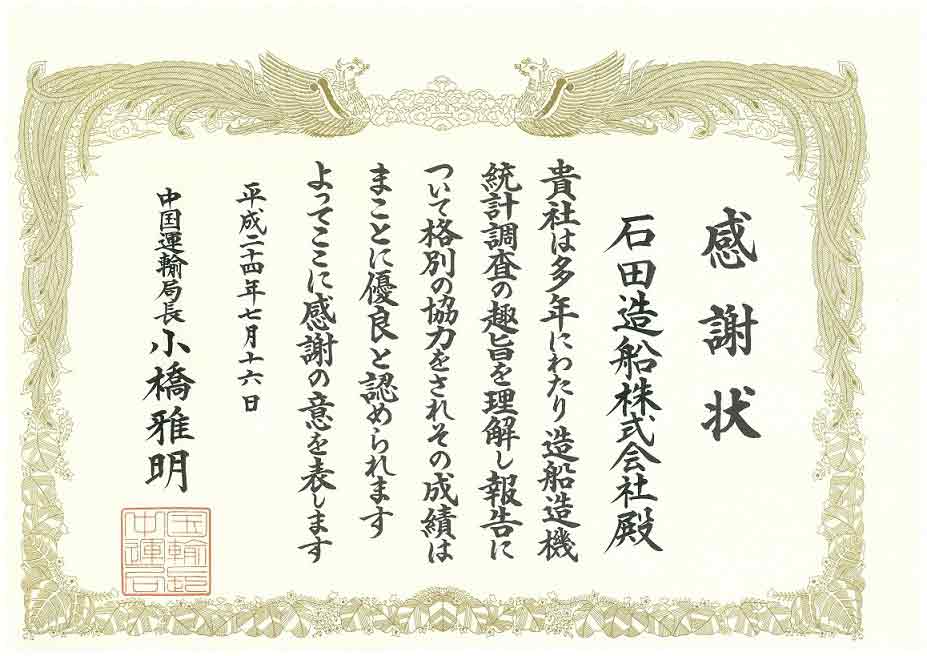 感謝状
石田造船株式会社殿
貴社は多年にわたり造船造機
統計調査の趣旨を理解し報告に
ついて格別の協力をされその成績は
まことに優良と認められます
よってここに感謝の意を表します
平成二十四年七月十六日
中国運輸局長 小橋雅明